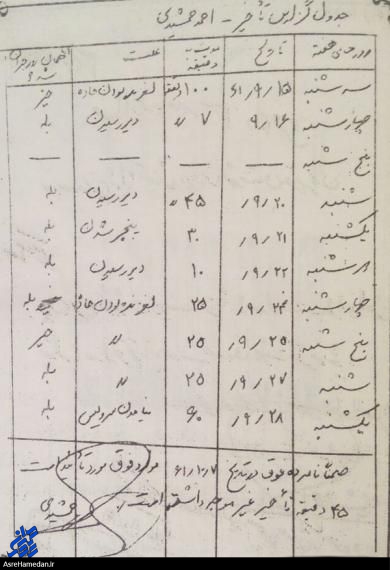 جدول گزارش تأخیر - احمد جمشیدی
روزهای هفته تاریخ مدت به دقیقه علت
سه شنبه ۶۱/۹/۱۵ ۱۰۰ دقیقه لغزنده بودن جاده خیر
چهارشنبه ۹/۱۶ ۷ " دیر رسیدن بله
پنج شنبه — — — —
شنبه /۹/۲۰ ۴۵ " دیر رسیدن بله
یکشنبه /۹/۲۱ ۳۰ پنچر شدن بله
/۹/۲۲ ۱۰ دیر رسیدن بله
چهارشنبه /۹/۲۴ ۲۵ لغزنده بودن جاده بله
پنج شنبه /۹/۲۵ ۲۵ " خیر
شنبه /۹/۲۷ ۲۵ " بله
یکشنبه /۹/۲۸ ۹۰ نیامدن سرویس بله
ضمناً نامبرده فوق در تاریخ ۶۱/۱۰/۷ مورد فوق مورد تأیید است
۴۵ دقیقه تأخیر غیر موجه داشته است جمشیدی
AsreHamedan.ir